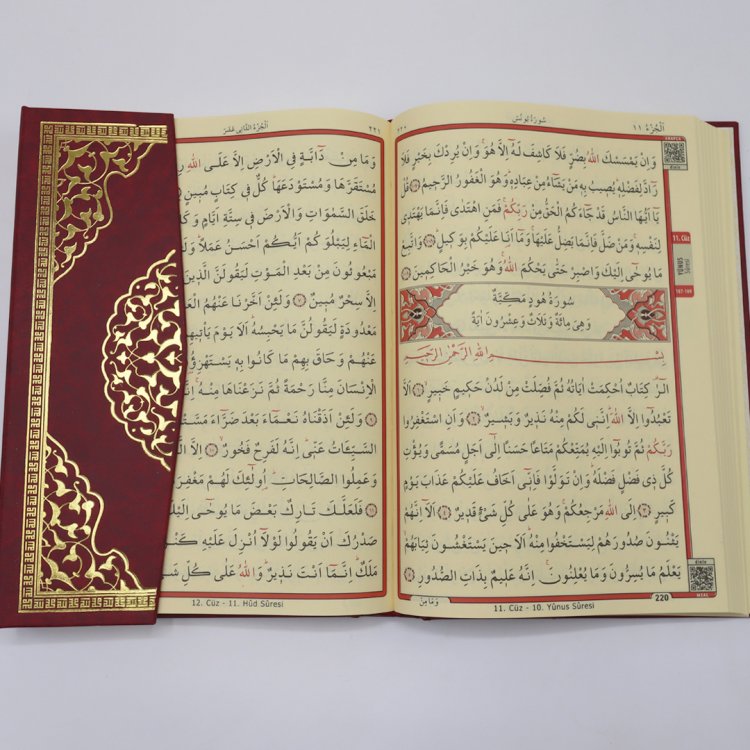 سُورَةُ يُونُسَ
اَلْجُزْءُ ١١
وَاِنْ يَمْسَسْكَ اللّٰهُ بِضُرٍّ فَلَا كَاشِفَ لَهُٓ اِلَّا هُوَۚ وَاِنْ يُرِدْكَ بِخَيْرٍ فَلَا
رَٓادَّ لِفَضْلِهٖۜ يُصٖيبُ بِهٖ مَنْ يَشَٓاءُ مِنْ عِبَادِهٖۜ وَهُوَ الْغَفُورُ الرَّحٖيمُ ﴿١٠٧﴾ قُلْ
يَٓا اَيُّهَا النَّاسُ قَدْ جَٓاءَكُمُ الْحَقُّ مِنْ رَبِّكُمْۚ فَمَنِ اهْتَدٰى فَاِنَّمَا يَهْتَدٖي
لِنَفْسِهٖۚ وَمَنْ ضَلَّ فَاِنَّمَا يَضِلُّ عَلَيْهَاۚ وَمَٓا اَنَا عَلَيْكُمْ بِوَكٖيلٍۜ ﴿١٠٨﴾ وَاتَّبِعْ
مَا يُوحٰٓى اِلَيْكَ وَاصْبِرْ حَتّٰى يَحْكُمَ اللّٰهُۚ وَهُوَ خَيْرُ الْحَاكِمٖينَ ﴿١٠٩﴾
سُورَةُ هُودٍ مَكِّيَّةٌ
وَهِىَ مِائَةٌ وَثَلَاثٌ وَعِشْرُونَ اٰيَةً
بِسْمِ اللّٰهِ الرَّحْمٰنِ الرَّحٖيمِ
الٓرٰ۠ كِتَابٌ اُحْكِمَتْ اٰيَاتُهُ ثُمَّ فُصِّلَتْ مِنْ لَدُنْ حَكٖيمٍ خَبٖيرٍۙ ﴿١﴾ اَلَّا
تَعْبُدُٓوا اِلَّا اللّٰهَۜ اِنَّنٖي لَكُمْ مِنْهُ نَذٖيرٌ وَبَشٖيرٌۙ ﴿٢﴾ وَاَنِ اسْتَغْفِرُوا
رَبَّكُمْ ثُمَّ تُوبُٓوا اِلَيْهِ يُمَتِّعْكُمْ مَتَاعًا حَسَنًا اِلٰٓى اَجَلٍ مُسَمًّى وَيُؤْتِ
كُلَّ ذٖي فَضْلٍ فَضْلَهُۜ وَاِنْ تَوَلَّوْا فَاِنّٖٓي اَخَافُ عَلَيْكُمْ عَذَابَ يَوْمٍ
كَبٖيرٍ ﴿٣﴾ اِلَى اللّٰهِ مَرْجِعُكُمْۚ وَهُوَ عَلٰى كُلِّ شَيْءٍ قَدٖيرٌ ﴿٤﴾ اَلَٓا اِنَّهُمْ
يَثْنُونَ صُدُورَهُمْ لِيَسْتَخْفُوا مِنْهُۜ اَلَا حٖينَ يَسْتَغْشُونَ ثِيَابَهُمْۙ
يَعْلَمُ مَا يُسِرُّونَ وَمَا يُعْلِنُونَۚ اِنَّهُ عَلٖيمٌ بِذَاتِ الصُّدُورِ ﴿٥﴾
وَمَا مِنْ
11. Cüz - 10. Yûnus Sûresi
220
11. Cüz
YÛNUS
Sûresi
107-109
اَلْجُزْءُ الثَّانِي عَشَرَ
٢٢١
وَمَا مِنْ دَٓابَّةٍ فِي الْاَرْضِ اِلَّا عَلَى اللّٰهِ
مُسْتَقَرَّهَا وَمُسْتَوْدَعَهَاۜ كُلٌّ فٖي كِتَابٍ مُبٖينٍ
خَلَقَ السَّمٰوَاتِ وَالْاَرْضَ فٖي سِتَّةِ اَيَّامٍ وَكَ
الْمَٓاءِ لِيَبْلُوَكُمْ اَيُّكُمْ اَحْسَنُ عَمَلًاۜ وَلَ
مَبْعُوثُونَ مِنْ بَعْدِ الْمَوْتِ لَيَقُولَنَّ الَّذٖينَ
اِلَّا سِحْرٌ مُبٖينٌ ﴿٧﴾ وَلَئِنْ اَخَّرْنَا عَنْهُمُ الْعَ
مَعْدُودَةٍ لَيَقُولُنَّ مَا يَحْبِسُهُۜ اَلَا يَوْمَ يَأْتٖيهِ
عَنْهُمْ وَحَاقَ بِهِمْ مَا كَانُوا بِهٖ يَسْتَهْزِؤُ
الْاِنْسَانَ مِنَّا رَحْمَةً ثُمَّ نَزَعْنَاهَا مِنْهُۚ اِ
وَلَئِنْ اَذَقْنَاهُ نَعْمَٓاءَ بَعْدَ ضَرَّٓاءَ مَسَّتْ
السَّيِّـَٔاتُ عَنّٖيۜ اِنَّهُ لَفَرِحٌ فَخُورٌۙ ﴿١٠﴾ اِلَّا الَّ
وَعَمِلُوا الصَّالِحَاتِۜ اُو۬لٰٓئِكَ لَهُمْ مَغْفِرَ
فَلَعَلَّكَ تَارِكٌ بَعْضَ مَا يُوحٰٓى اِلَ
صَدْرُكَ اَنْ يَقُولُوا لَوْلَٓا اُنْزِلَ عَلَيْهِ كَنْ
مَلَكٌۜ اِنَّمَٓا اَنْتَ نَذٖيرٌۜ وَاللّٰهُ عَلٰى كُلِّ شَ
12. Cüz - 11. Hûd Sûresi